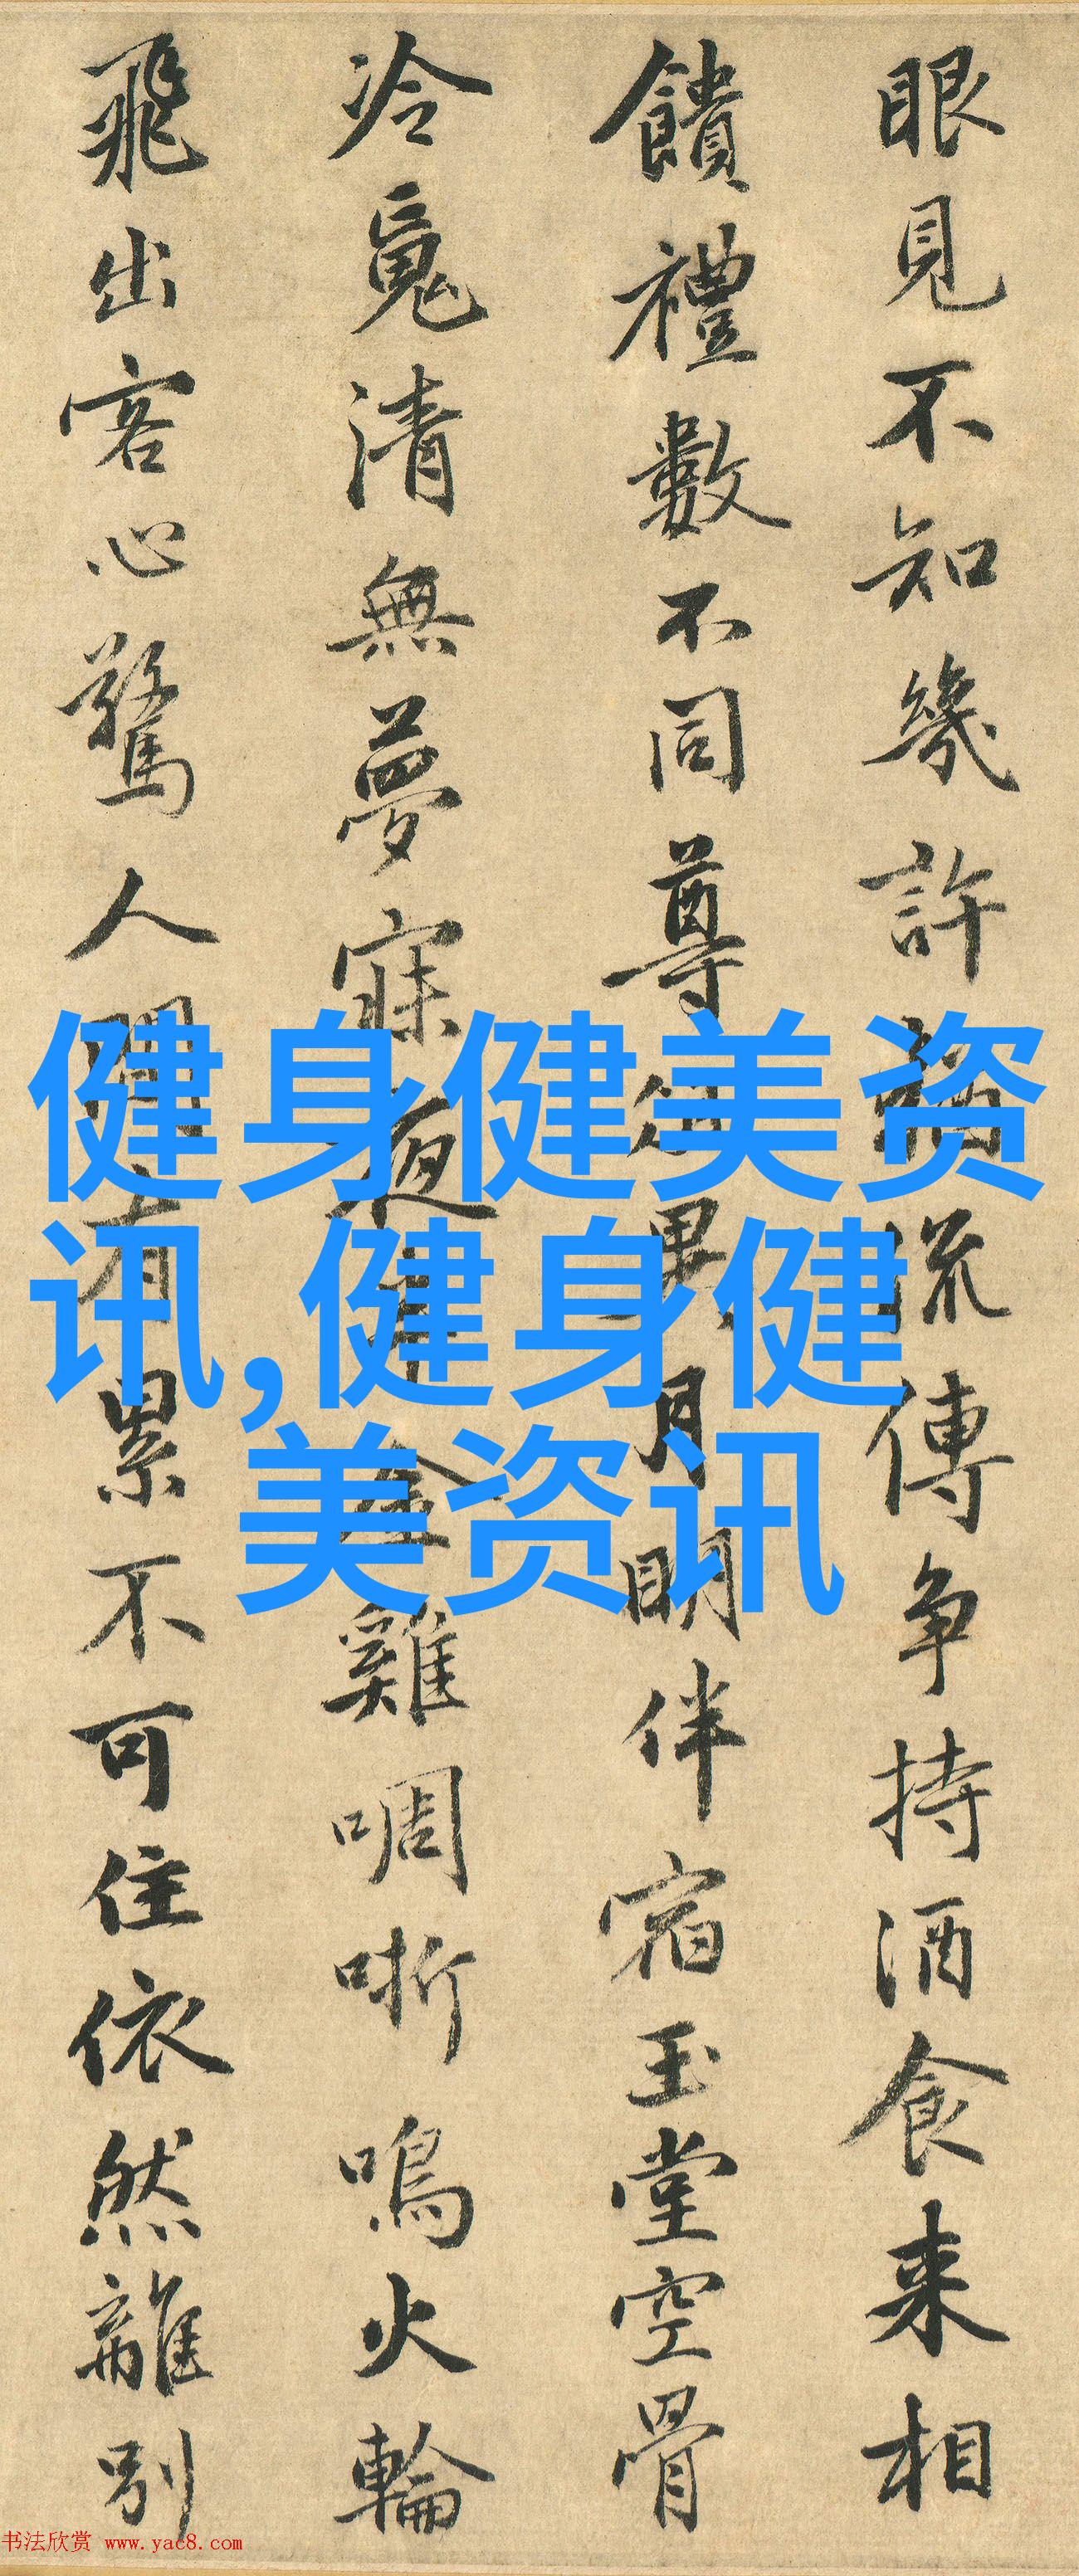 眼見不知幾許猶流傳争持酒食来相
饋禮數不同尊俎異月明伴宿玉堂空骨
冷䰟清無夢寐夜半金雞啁哳鳴火輪
飛出客心驚人間有累不可住依然離別
健身健美资
讯,健身健
美资讯
书法欣赏 www.yac8.com